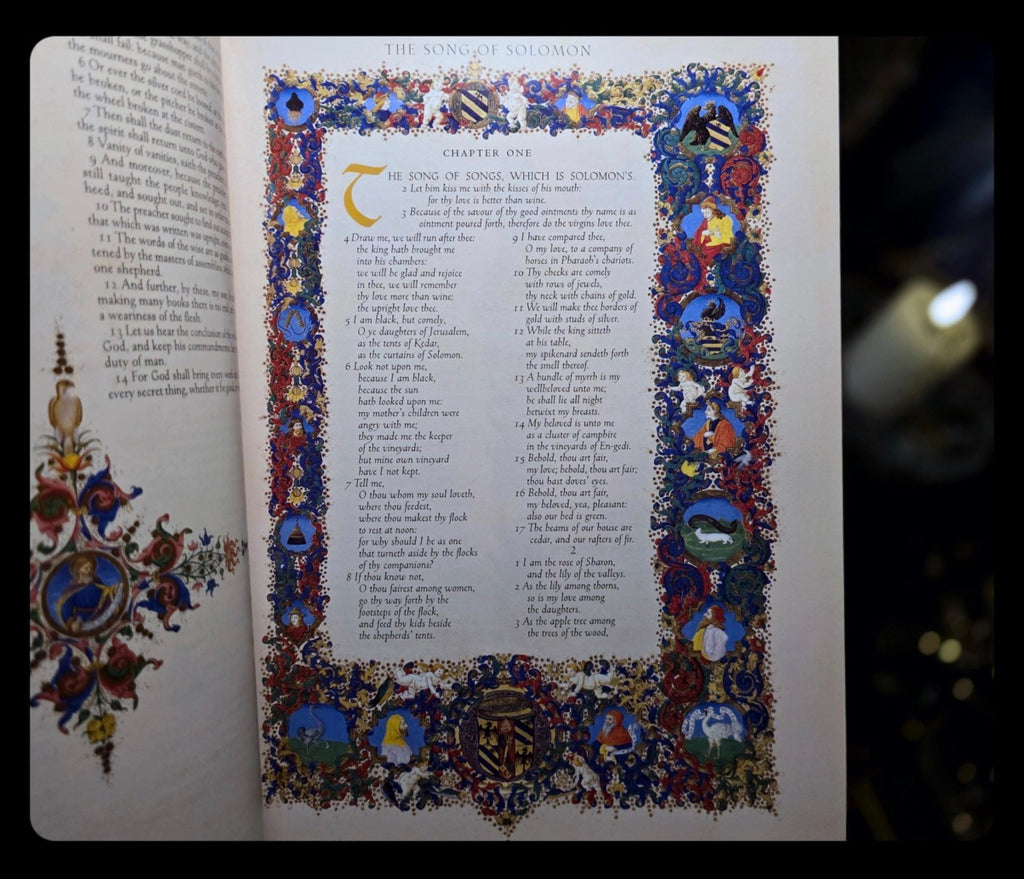 shall fail: because man goeth
the mourners go about the
6 Or ever the silver cord be loosed, or
be broken, or the pitcher be broken at
the wheel broken at the cistern.
7 Then shall the dust return to the
the spirit shall return unto God who
8 Vanity of vanities, saith the preacher
9 And moreover, because the preacher
still taught the people knowledge;
heed, and sought out, and set in order
10 The preacher sought to find out
that which was written was upright,
11 The words of the wise are as
tened by the masters of assemblies,
one shepherd.
12 And further, by these, my son,
making many books there is no
a weariness of the flesh.
13 Let us hear the conclusion of the
God, and keep his commandments:
duty of man.
14 For God shall bring every work
every secret thing, whether it be good,
THE SONG OF SOLOMON
CHAPTER ONE
THE SONG OF SONGS, WHICH IS SOLOMON'S.
2 Let him kiss me with the kisses of his mouth:
for thy love is better than wine.
3 Because of the savour of thy good ointments thy name is as
ointment poured forth, therefore do the virgins love thee.
4 Draw me, we will run after thee:
the king hath brought me
into his chambers:
we will be glad and rejoice
in thee, we will remember
thy love more than wine:
the upright love thee.
5 I am black, but comely,
O ye daughters of Jerusalem,
as the tents of Kedar,
as the curtains of Solomon.
6 Look not upon me,
because I am black,
because the sun
hath looked upon me:
my mother's children were
angry with me;
they made me the keeper
of the vineyards;
but mine own vineyard
have I not kept.
7 Tell me,
O thou whom my soul loveth,
where thou feedest,
where thou makest thy flock
to rest at noon:
for why should I be as one
that turneth aside by the flocks
of thy companions?
8 If thou know not,
O thou fairest among women,
go thy way forth by the
footsteps of the flock,
and feed thy kids beside
the shepherds' tents.
9 I have compared thee,
O my love, to a company of
horses in Pharaoh's chariots.
10 Thy cheeks are comely
with rows of jewels,
thy neck with chains of gold.
11 We will make thee borders of
gold with studs of silver.
12 While the king sitteth
at his table,
my spikenard sendeth forth
the smell thereof.
13 A bundle of myrrh is my
wellbeloved unto me;
he shall lie all night
betwixt my breasts.
14 My beloved is unto me
as a cluster of camphire
in the vineyards of En-gedi.
15 Behold, thou art fair,
my love; behold, thou art fair;
thou hast doves' eyes.
16 Behold, thou art fair,
my beloved, yea, pleasant:
also our bed is green.
17 The beams of our house are
cedar, and our rafters of fir.
2
1 I am the rose of Sharon,
and the lily of the valleys.
2 As the lily among thorns,
so is my love among
the daughters.
3 As the apple tree among
the trees of the wood,